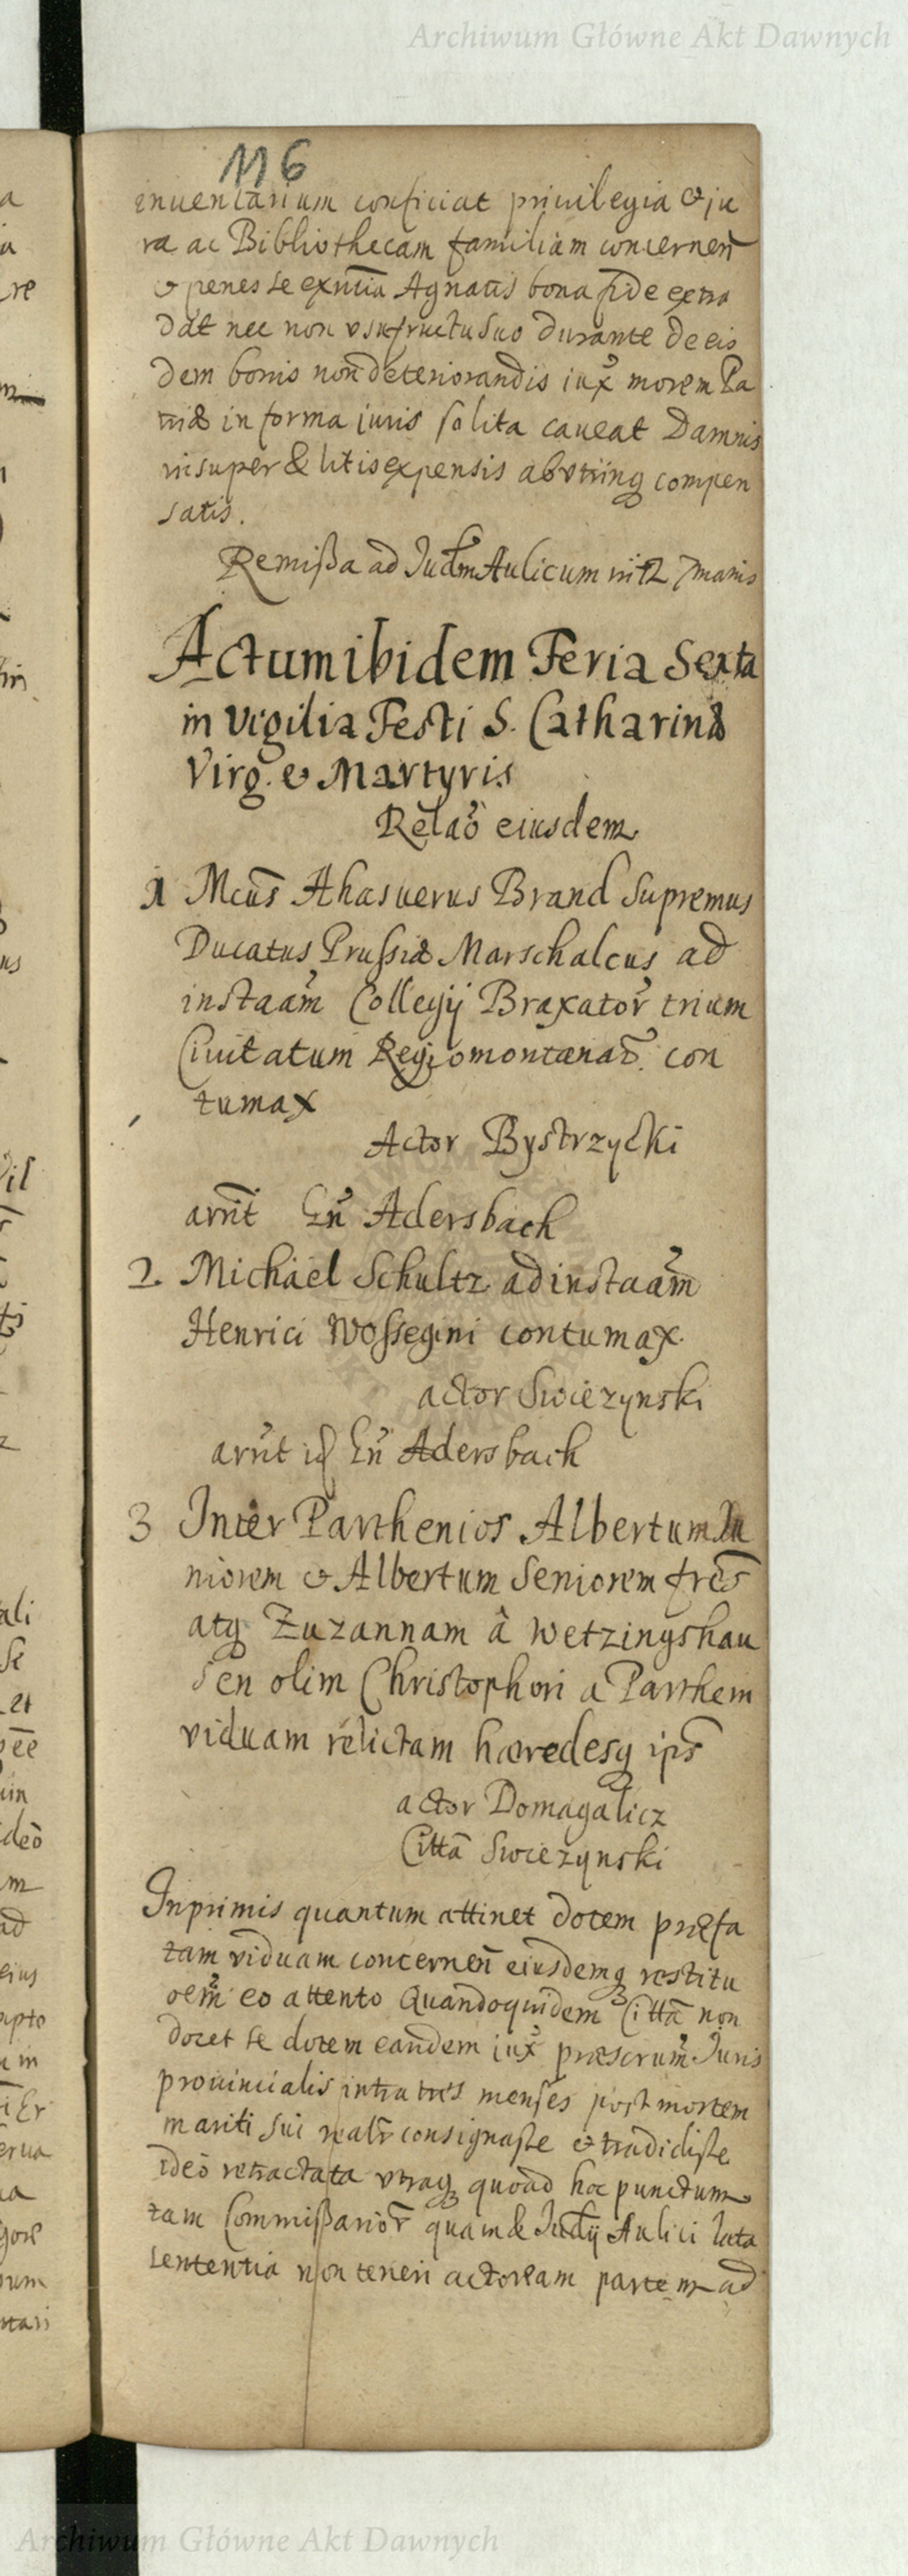 Archiwum Główne Akt Dawnych
116
inuentarium conficiat priuilegia & ju
ra ac Bibliothecam familiam concernen̄
& penes se exn̄tia Agnatis bona fide extra
dat nec non vsufructu suo durante de eis
dem bonis non deteriorandis iux morem Pa
triæ in forma iuris solita caueat Damnis
insuper & litis expensis ab vtrinq compen
satis.
Remissa ad Jud̄m Aulicum
Actum ibidem Feria Sexta
in vigilia Festi S. Catharinæ
Virg. & Martyris
Relaō eiusdem
1 Mcūs Ahasuerus Brand Supremus
Ducatus Prussiæ Marschalcus ad
instaām Collegij Braxator̄ trium
Ciuitatum Regiomontanar̄. con
tumax
Actor Bystrzycki
arrn̄t Adersbach
2. Michael Schultz ad instaām
Henrici Wossegini contumax.
actor Swiezynski
arrn̄t Adersbach
3 Inter Parthenios Albertum Iu
niorem & Albertum Seniorem frēs
atq Zuzannam à Wetzingshau
sen olim Christophori a Parthem
viduam relictam hæredesq ips̄
actor Domagalicz
Citta Swiezynski
Inprimis quantum attinet dotem præfa
tam viduam concernen̄ eiusdemq restitu
oem̄ eo attento Quandoquidem Citta non
docet se dotem eandem iux præscrum̄ Juris
prouincialis intra tres menses post mortem
mariti sui realr̄ consignasse & tradidisse
ideo retractata vtraq quoad hoc punctum
tam Commissarior̄ quam & Judij Aulici lata
sententia non teneri actoream partem ad
Archiwum Główne Akt Dawnych